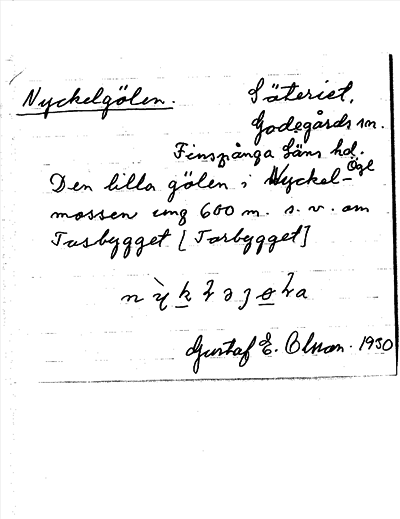 Nyckelgölen. Säteriet,
Godegårds sn.
Finspånga läns hd.
Ögl
Den lilla gölen i Nyckel-
mossen ung 600 m. s. v. om
Tasbygget [Torbygget]
Gustaf E. Olsson. 1930